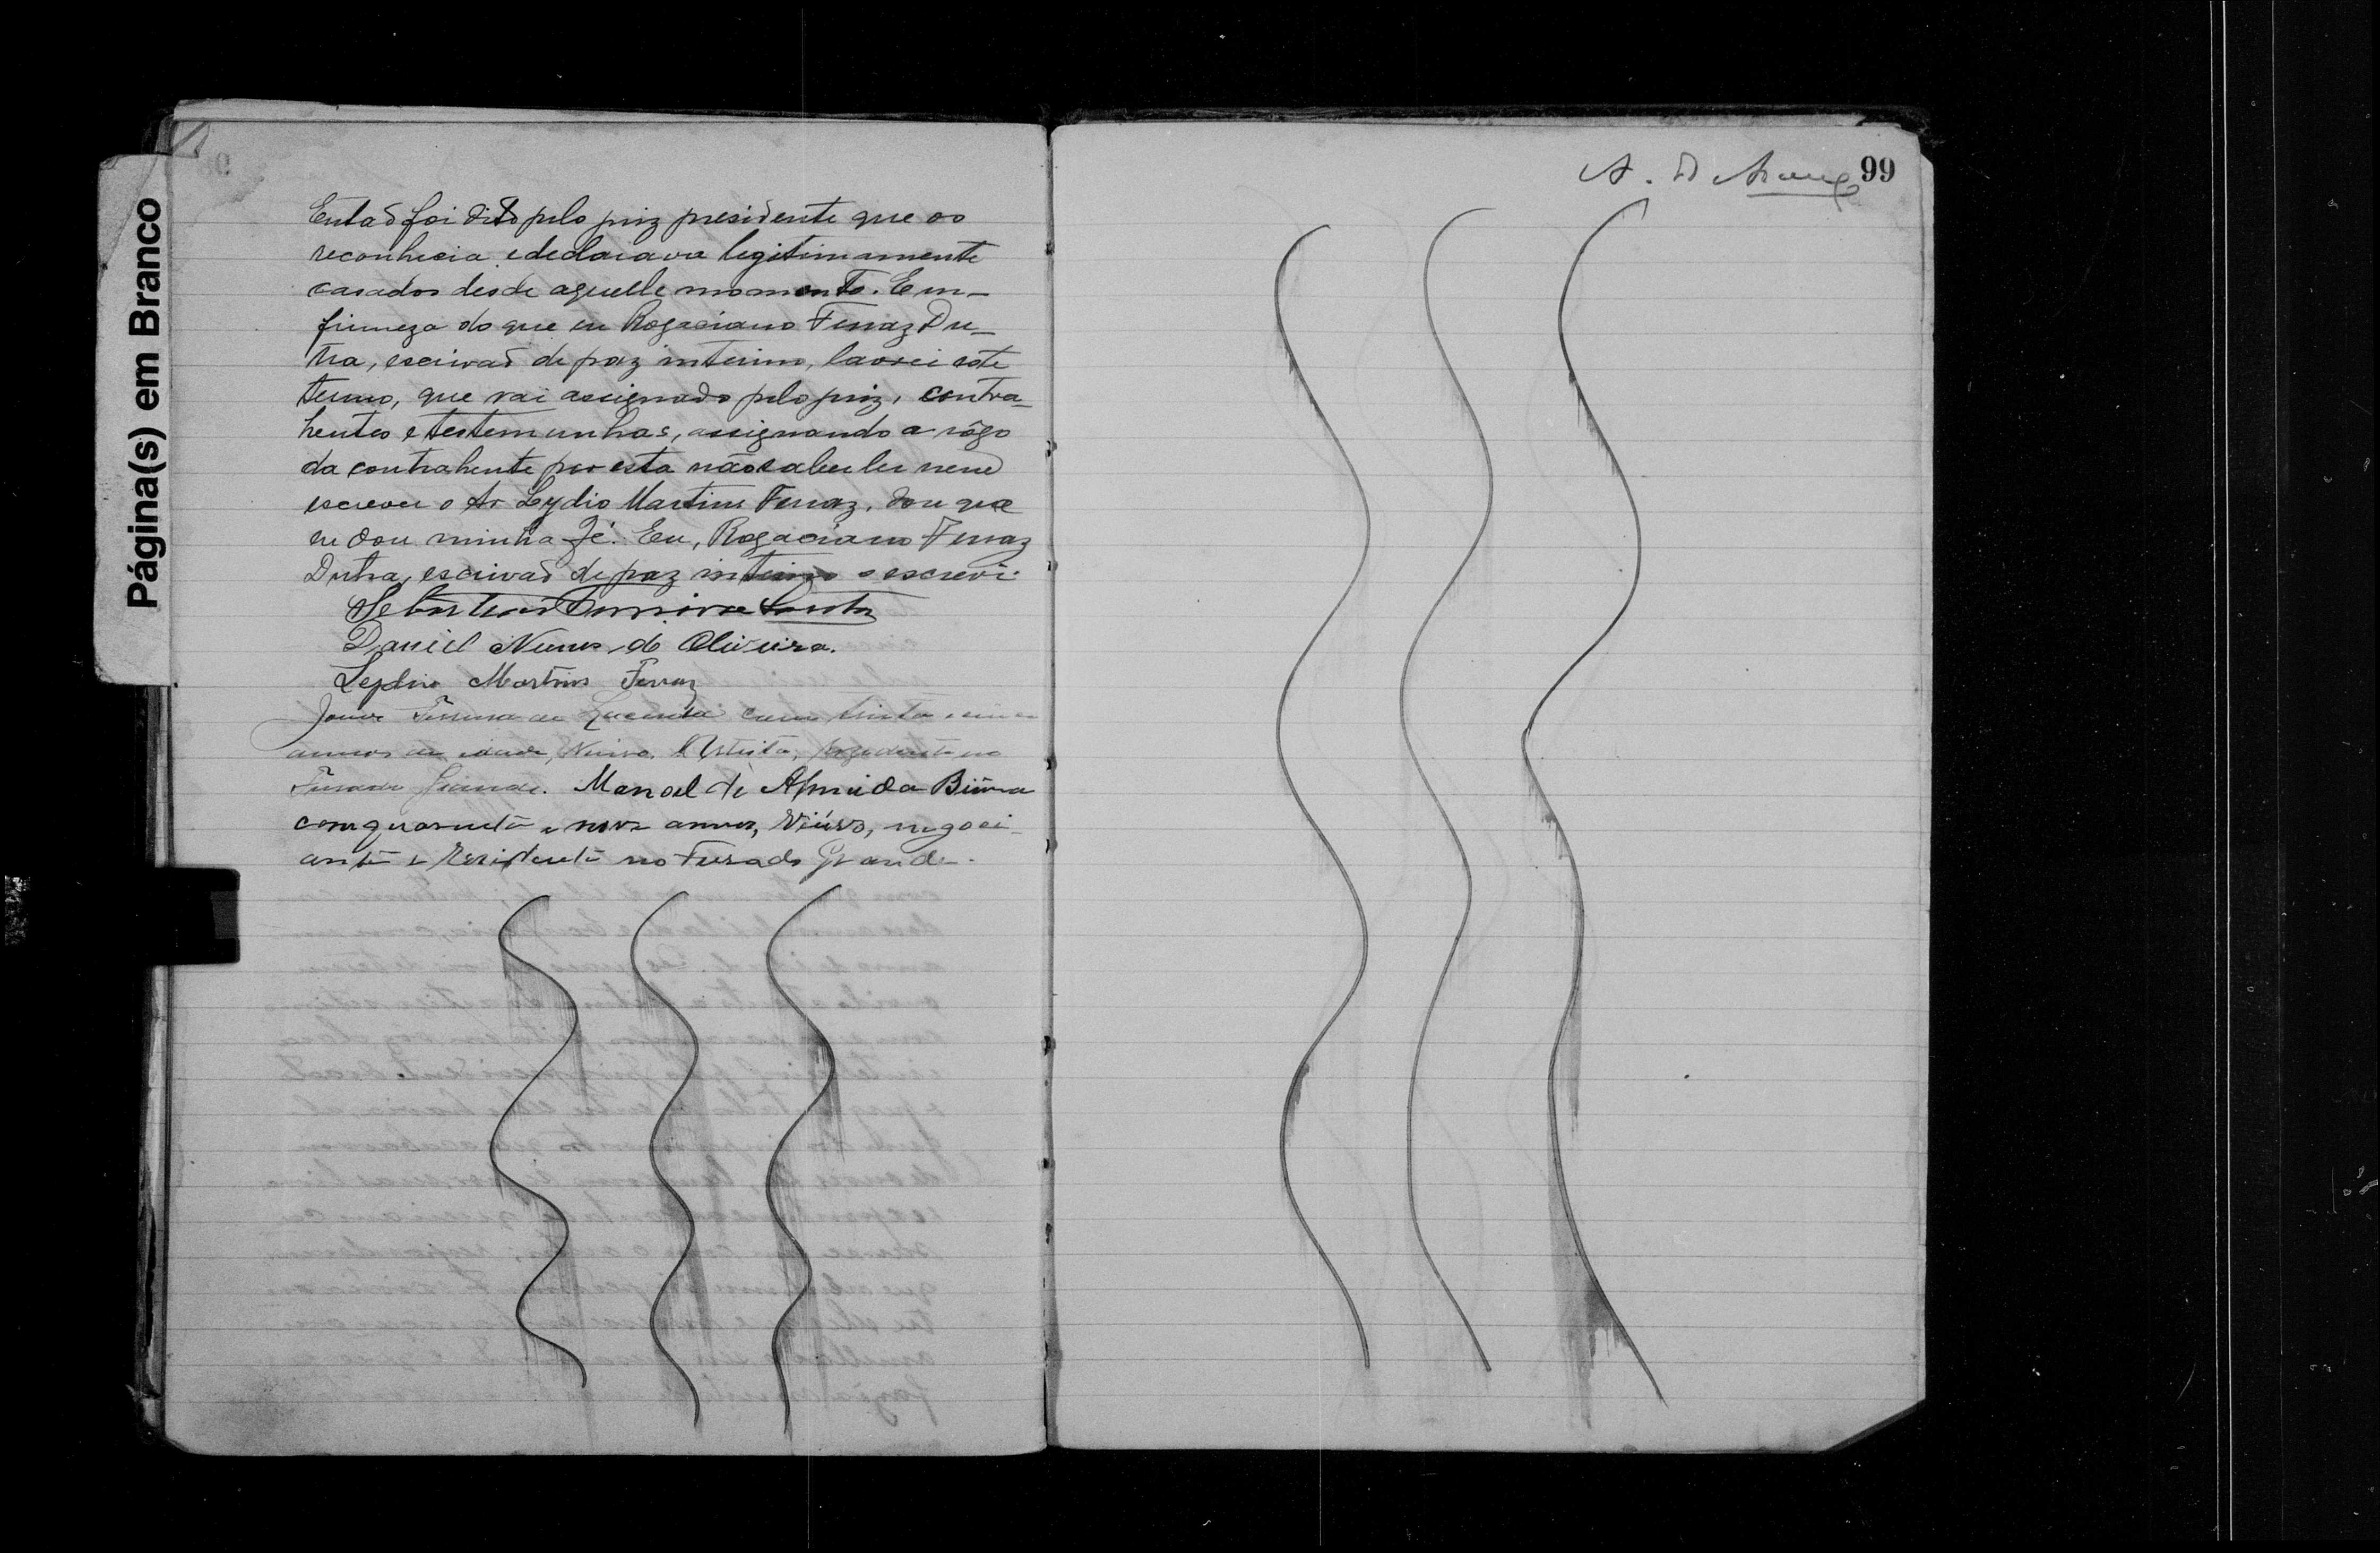 Página(s) em Branco
Entaõ foi dito pelo juiz presidente que os
reconhecia e declarava legitimamente
casados desde aquelle momento. Em-
firmeza do que eu Rogaciano Ferraz Du-
tra, escrivaõ de paz interino, lavrei este
termo, que vai assignado pelo juiz, contra-
hentes e testemunhas, assignando a rôgo
da contrahente por esta não saber ler nem
escrever o Sr Lydio Martins Ferraz, dou que
eu dou minha fé. Eu, Rogaciano Ferraz
Dutra, escrivaõ de paz interino o escrevi.
Daniel Nunes de Oliveira.
Lydio Martins Ferraz
Ferreira de com trinta e
annos de idade, Artista, rezidente no
Furado Grande. Manoel de Almeida
com quarenta e nove annos, Viúvo, negoci-
ante e Rezidente no Furado Grande.
99